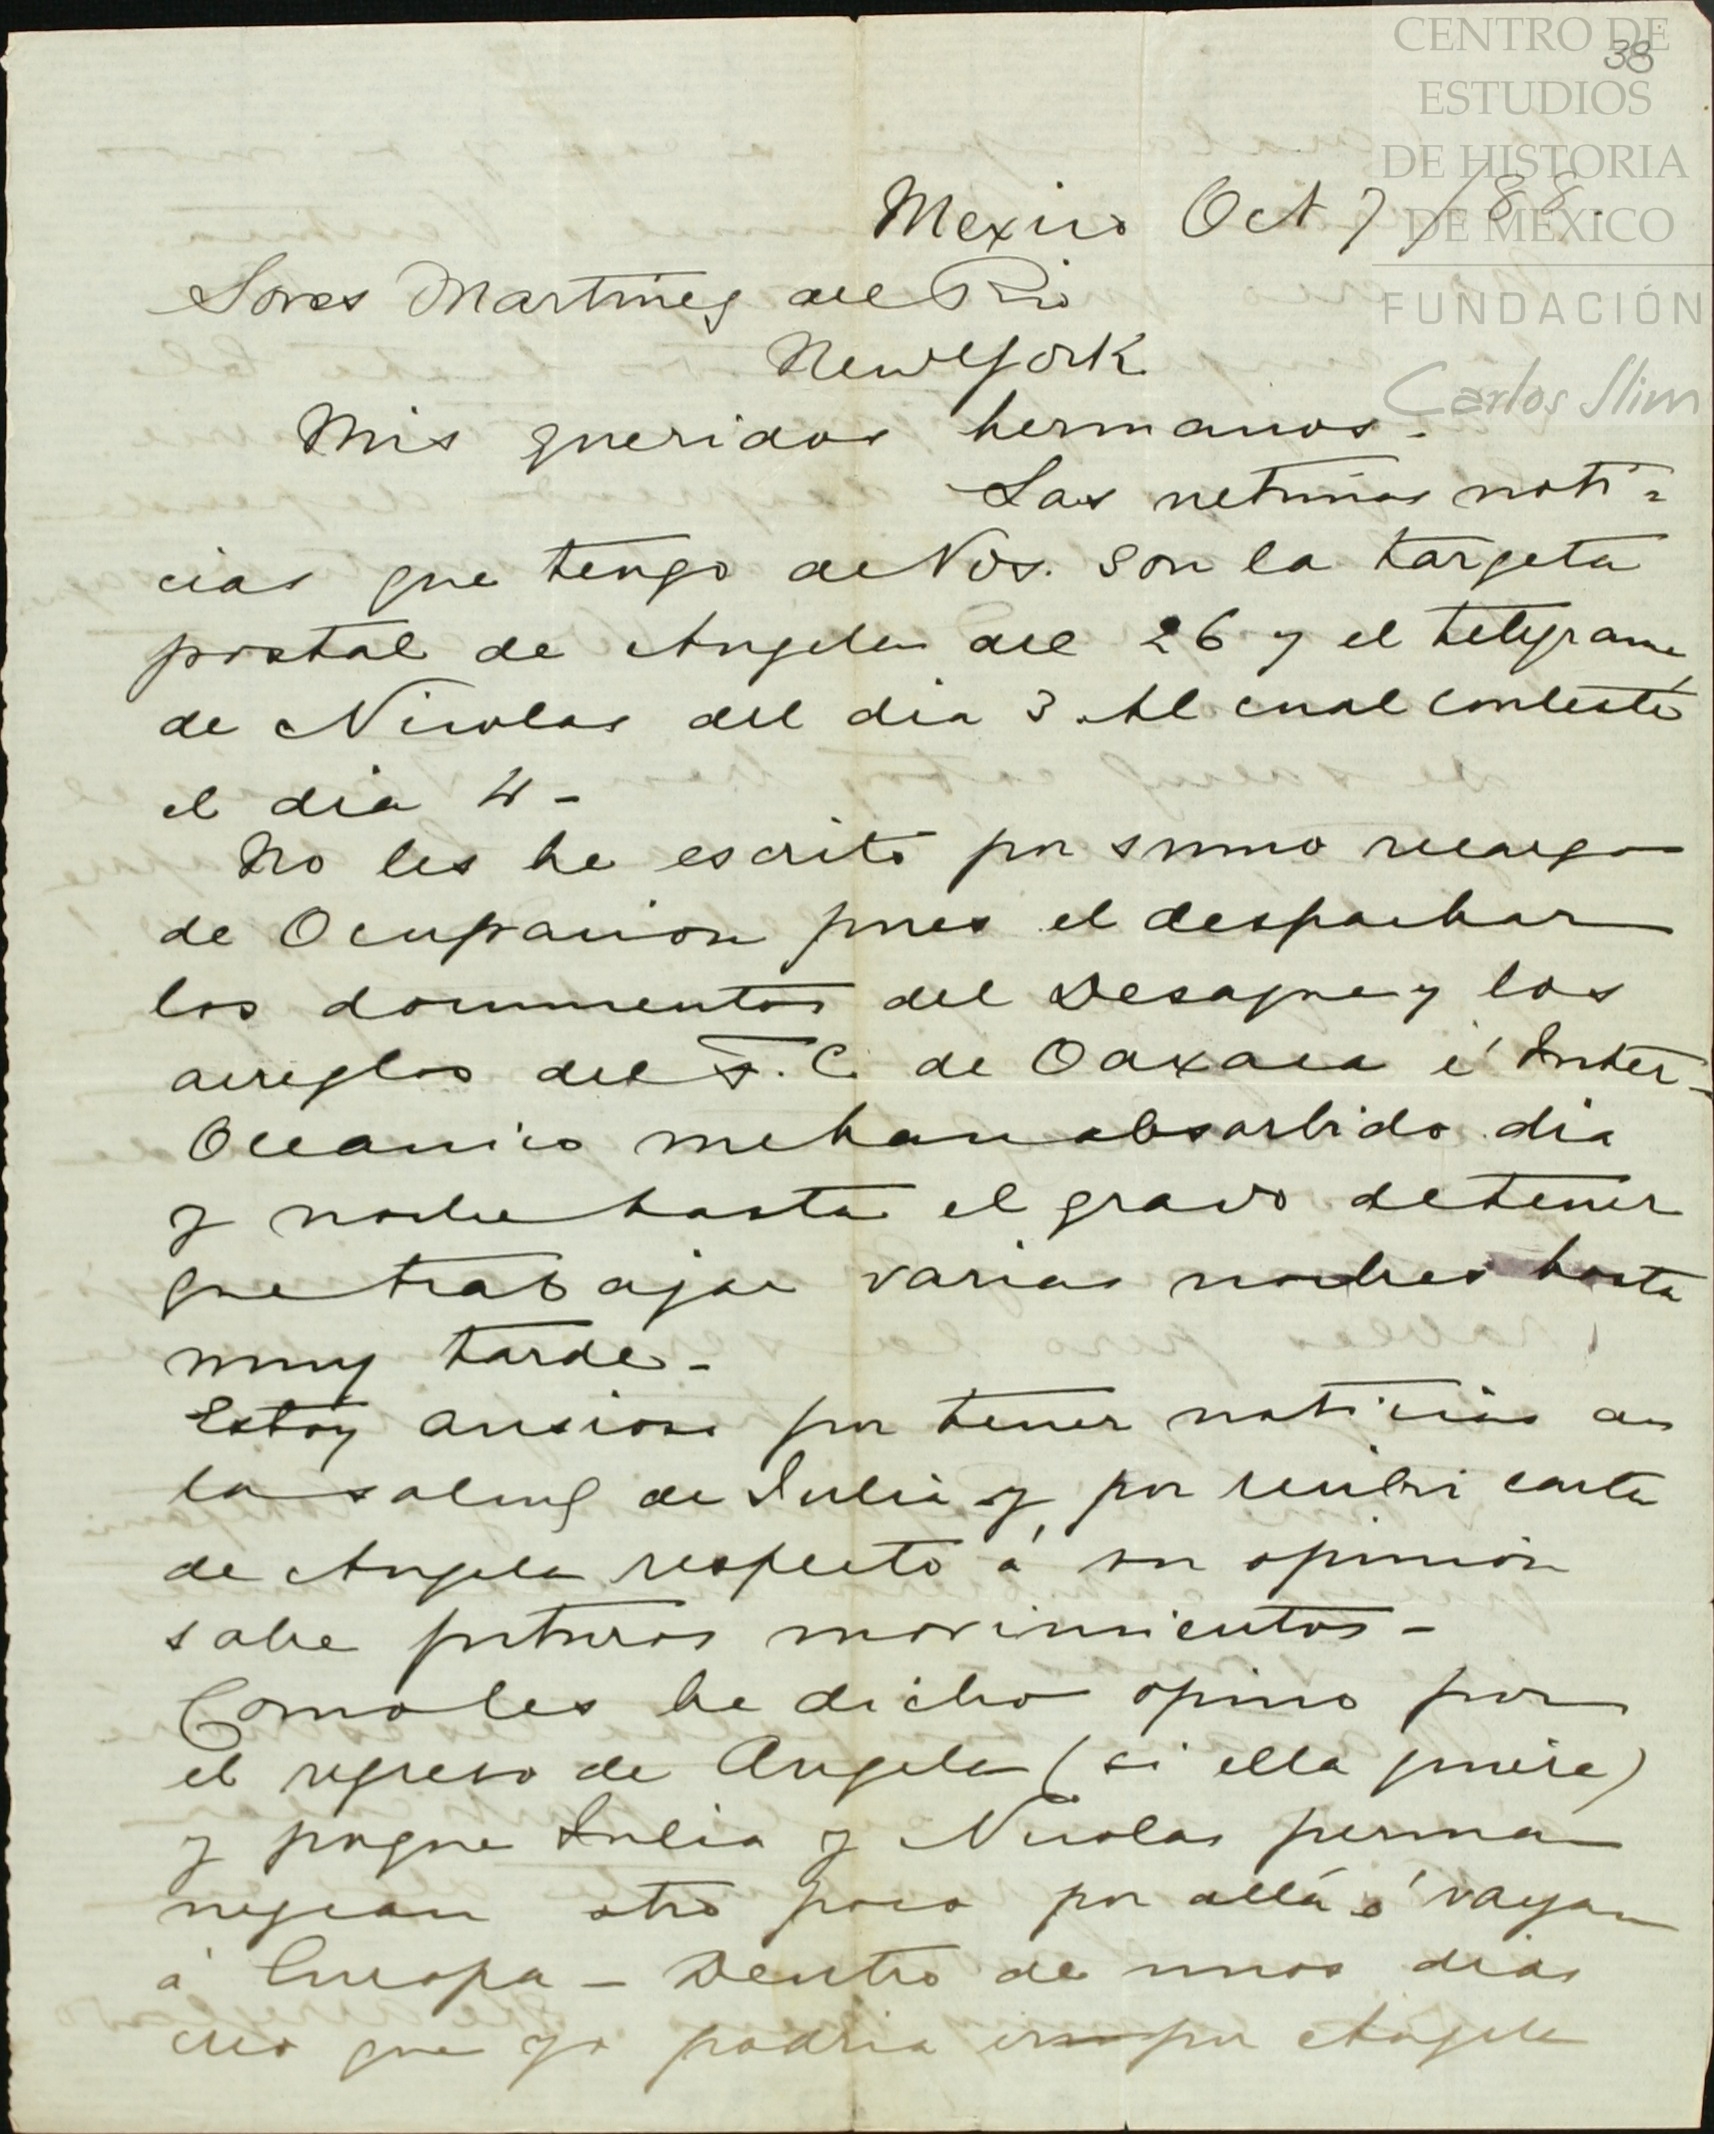 CENTRO DE
ESTUDIOS
DE HISTORIA
DE MÉXICO
FUNDACIÓN
Carlos Slim
38
Mexico Oct 7/88.
Sores Martinez del Rio
New York
Mis queridos hermanos.
Las ultimas noti=
cias que tengo de Vds. son la targeta
postal de Angela del 26 y el telegrama
de Nicolas del dia 3. Al cual contesté
el dia 4 -
No les he escrito por sumo recargo
de Ocupacion pues el despachar
los documentos del Desague y los
arreglos del F. C. de Oaxaca é Inter-
Oceanico me han absorbido dia
y noche hasta el grado de tener
que trabajar varias noches hasta
muy tarde -
Estoy ansioso por tener noticias de
la salud de Julia y por recibir carta
de Angela respecto á su opinión
sobre futuros movimientos -
Como les he dicho opino por
el regreso de Angela (si ella quiere)
y porque Julia y Nicolas perma
nezcan otro poco por allá ó vayan
á Europa - Dentro de unos dias
creo que yo podria ir por Angela